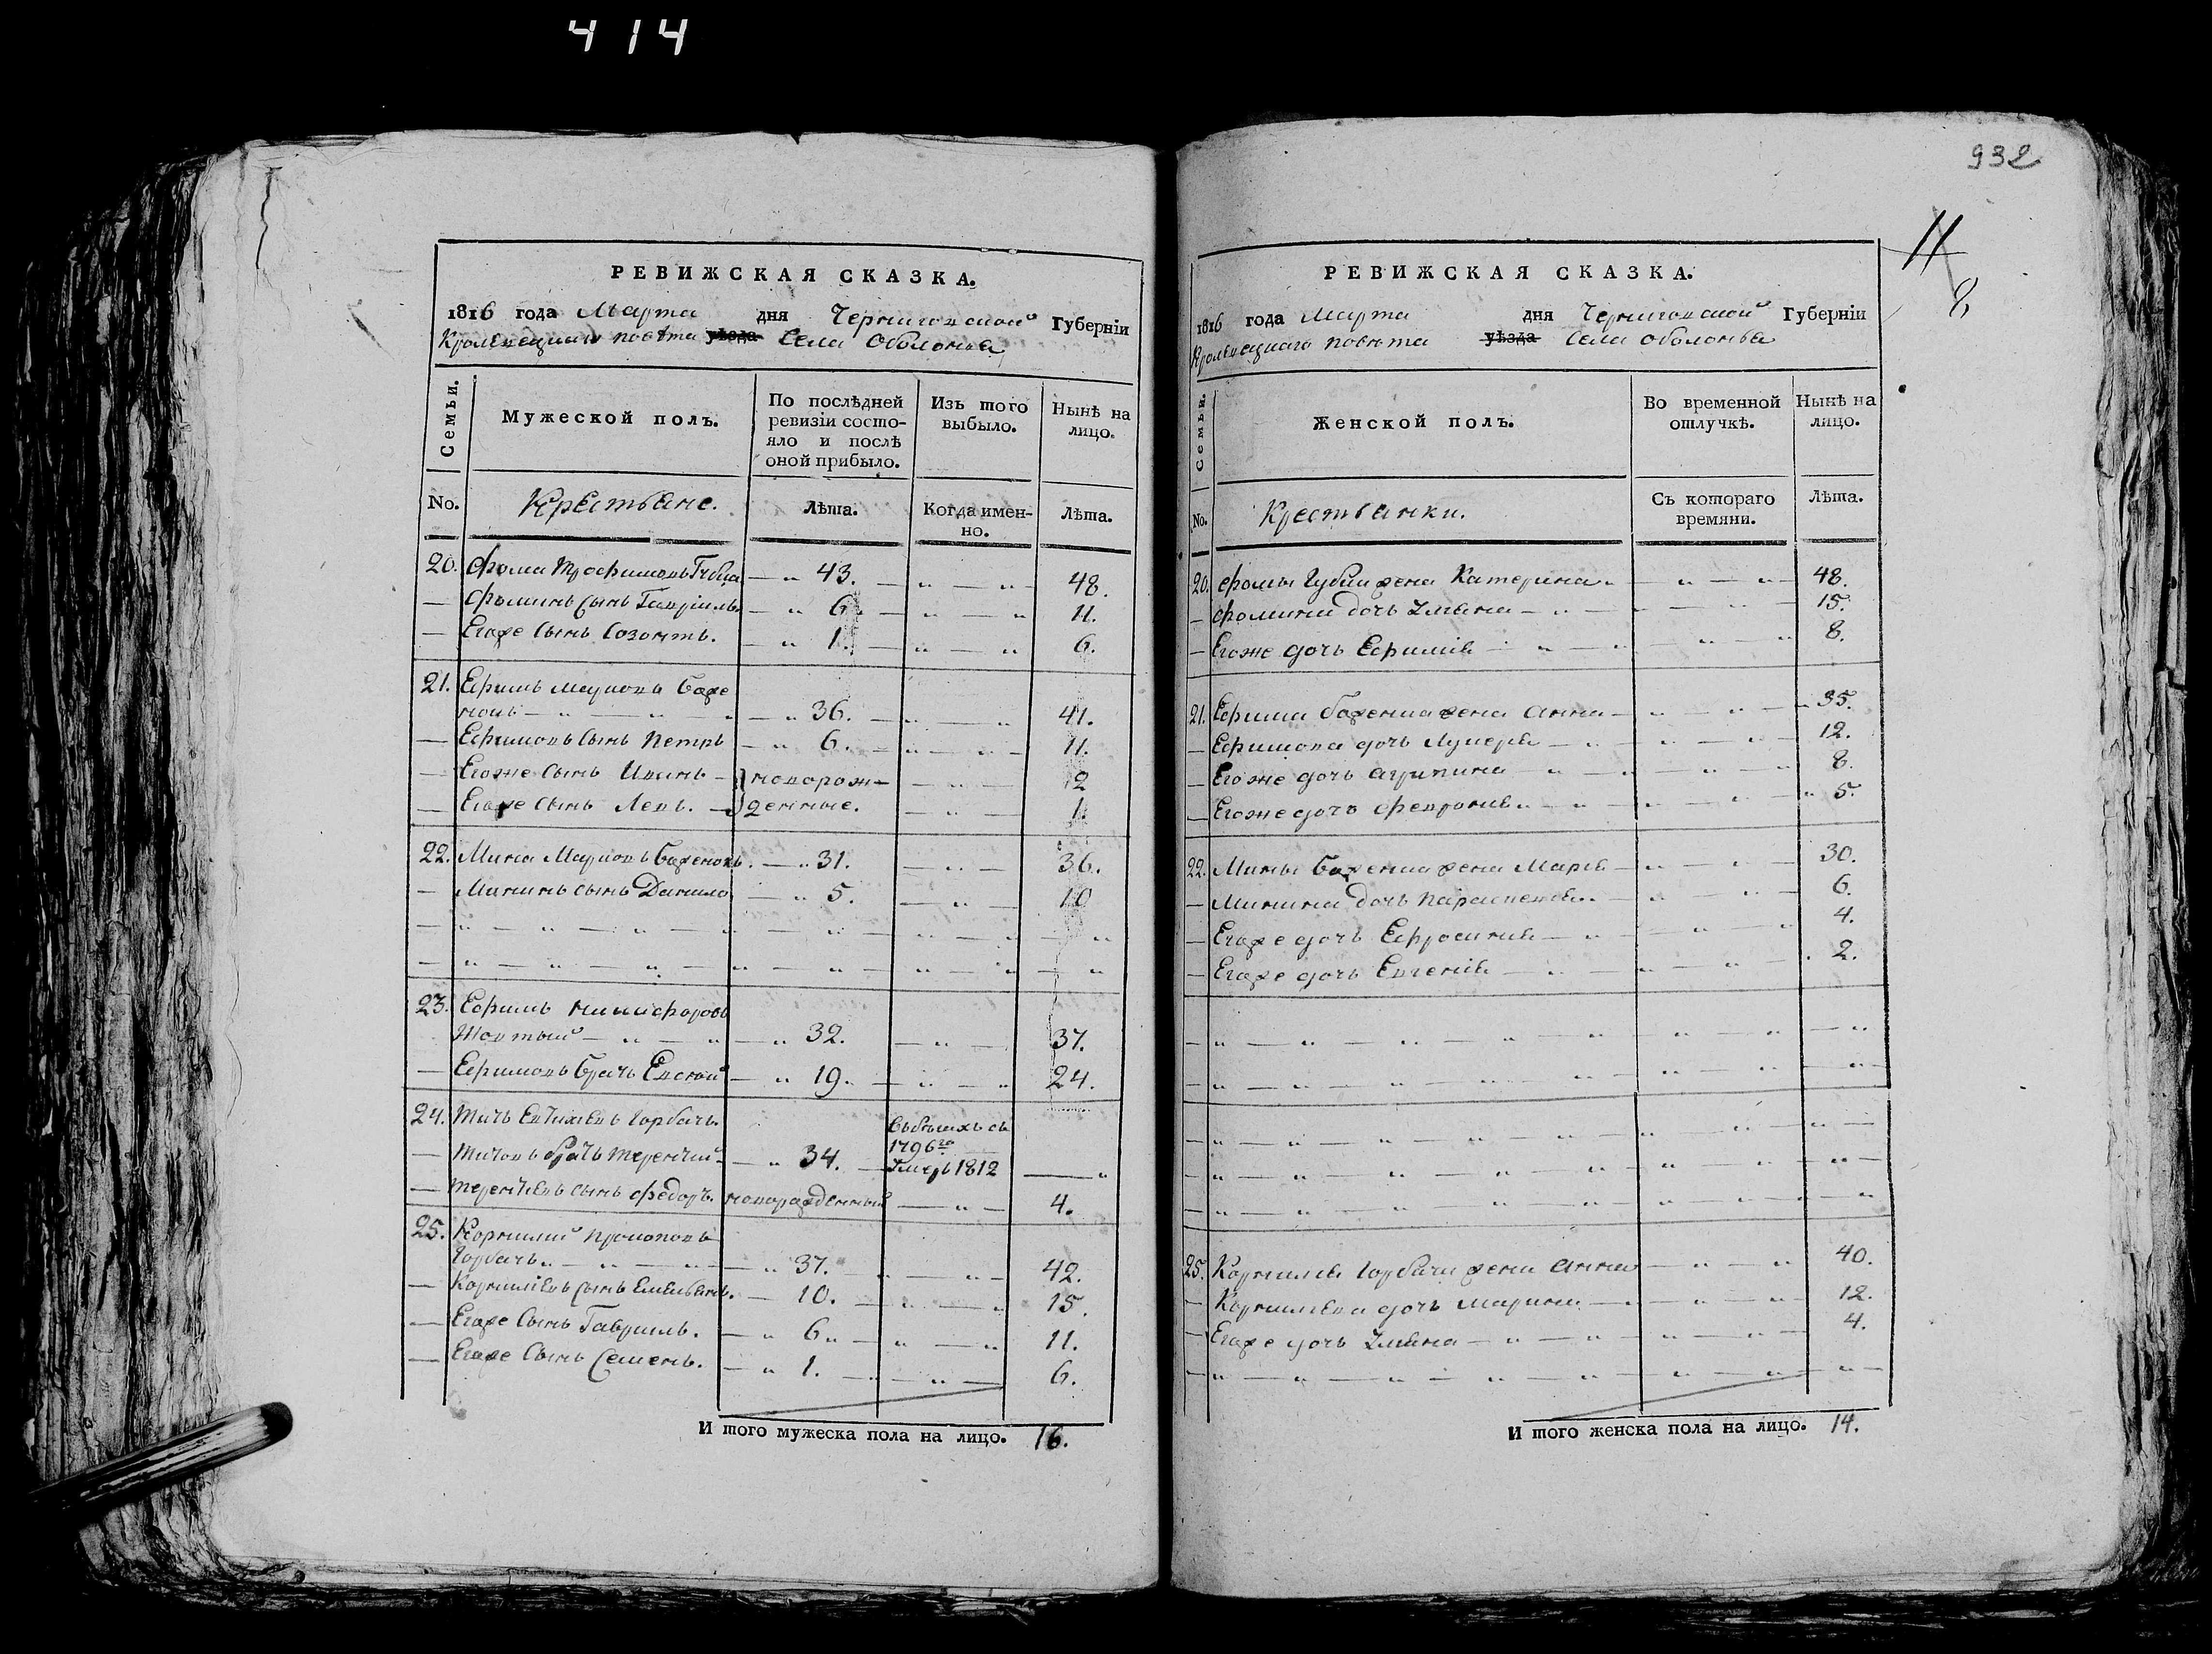 414
РЕВИЖСКАЯ СКАЗКА.
1816 года Марта дня Черниговской Губерніи
Кролевецкаго повѣта уѣзда Села Оболонья
Семьи. Мужеской полъ. По послѣдней ревизіи состояло и послѣ оной прибыло. Изъ того выбыло. Нынѣ на лицо.
No. Крестьяне. Лѣта. Когда именно. Лѣта.
20. Фома Трофимовъ Губа — „ 43. — „ — „ 48.
— Фоминъ Сынъ Гавріилъ — „ 6. — „ — „ 11.
— Егоже Сынъ Созонтъ. — „ 1. — „ — „ 6.
21. Ефимъ Марковъ Баже
новъ — „ — „ — „ — „ 36. — „ — „ 41.
— Ефимовъ Сынъ Петръ — „ 6. — „ — „ 11.
— Егоже Сынъ Иванъ — новорож- — „ — 2
— Егоже Сынъ Левъ. — денные. — „ — 1.
22. Мина Марковъ Баженовъ. — „ 31. — „ — 36.
— Мининъ сынъ Данило — „ 5. — „ — 10
23. Ефимъ Никифоровъ
Жовтый — „ — „ — „ 32. — „ — 37.
— Ефимовъ братъ Евсѣй — „ 19. — „ — „ 24.
24. Титъ Евтихіевъ Горбачъ. Въ бѣгахъ съ
1796го
— Титовъ братъ Терентій — „ 34. — Умеръ 1812 — „
— Терентіевъ сынъ Федоръ. новорожденный — „ — 4.
25. Корнилій Прокоповъ
Горбачъ „ — „ — „ — „ 37. — „ — „ — 42.
— Корниліевъ Сынъ Емельянъ. — 10. — „ — „ 15.
— Егоже Сынъ Гавриилъ. — „ 6 „ — „ — „ 11.
— Егоже Сынъ Семенъ. — „ 1. — „ — „ — 6.
И того мужеска пола на лицо. 16.
932
11
РЕВИЖСКАЯ СКАЗКА.
1816 года Марта дня Черниговской Губерніи
Кролевецкаго повѣта уѣзда Села Оболонья
Семьи. Женской полъ. Во временной отлучкѣ. Нынѣ на лицо.
No. Крестьянки. Съ котораго времяни. Лѣта.
20. Фомы Губы жена Катерина „ — „ — „ — 48.
— Фомина дочь Ульяна — „ — „ — 15.
— Егоже дочь Ефимія — „ — „ — „ — „ 8.
21. Ефима Баженова жена Анна — „ — „ — „ 35.
— Ефимова дочь Лукерія — „ — „ — „ — 12.
— Егоже дочь Агрипина „ — „ — „ — „ 8.
— Егоже дочь Февронія „ — „ — „ — „ 5.
22. Мины Баженова жена Марія — „ — „ — 30.
— Минина дочь Параскевія „ — „ — „ — 6.
— Егоже дочь Ефросинія — „ — „ — „ 4.
— Егоже дочь Евгенія — „ — „ — „ — 2.
25. Корнилія Горбача жена Анна — „ — „ 40.
— Корниліева дочь Марина — „ — „ — „ 12.
— Егоже дочь Ульяна — „ — „ — „ — 4.
И того женска пола на лицо. 14.